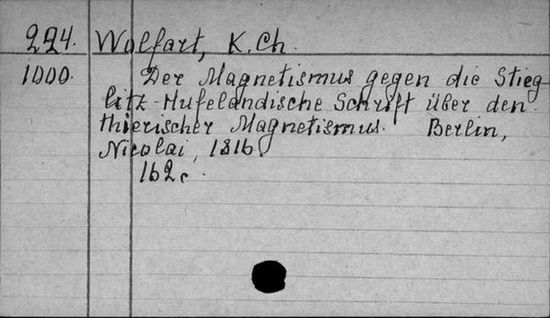 224. Wolfart, K.Ch.
1000. Der Magnetismus gegen die Stieg-
litz-Hufelandische Schrift über den
thierischer Magnetismus. Berlin,
Nicolai, 1816.
162 c.